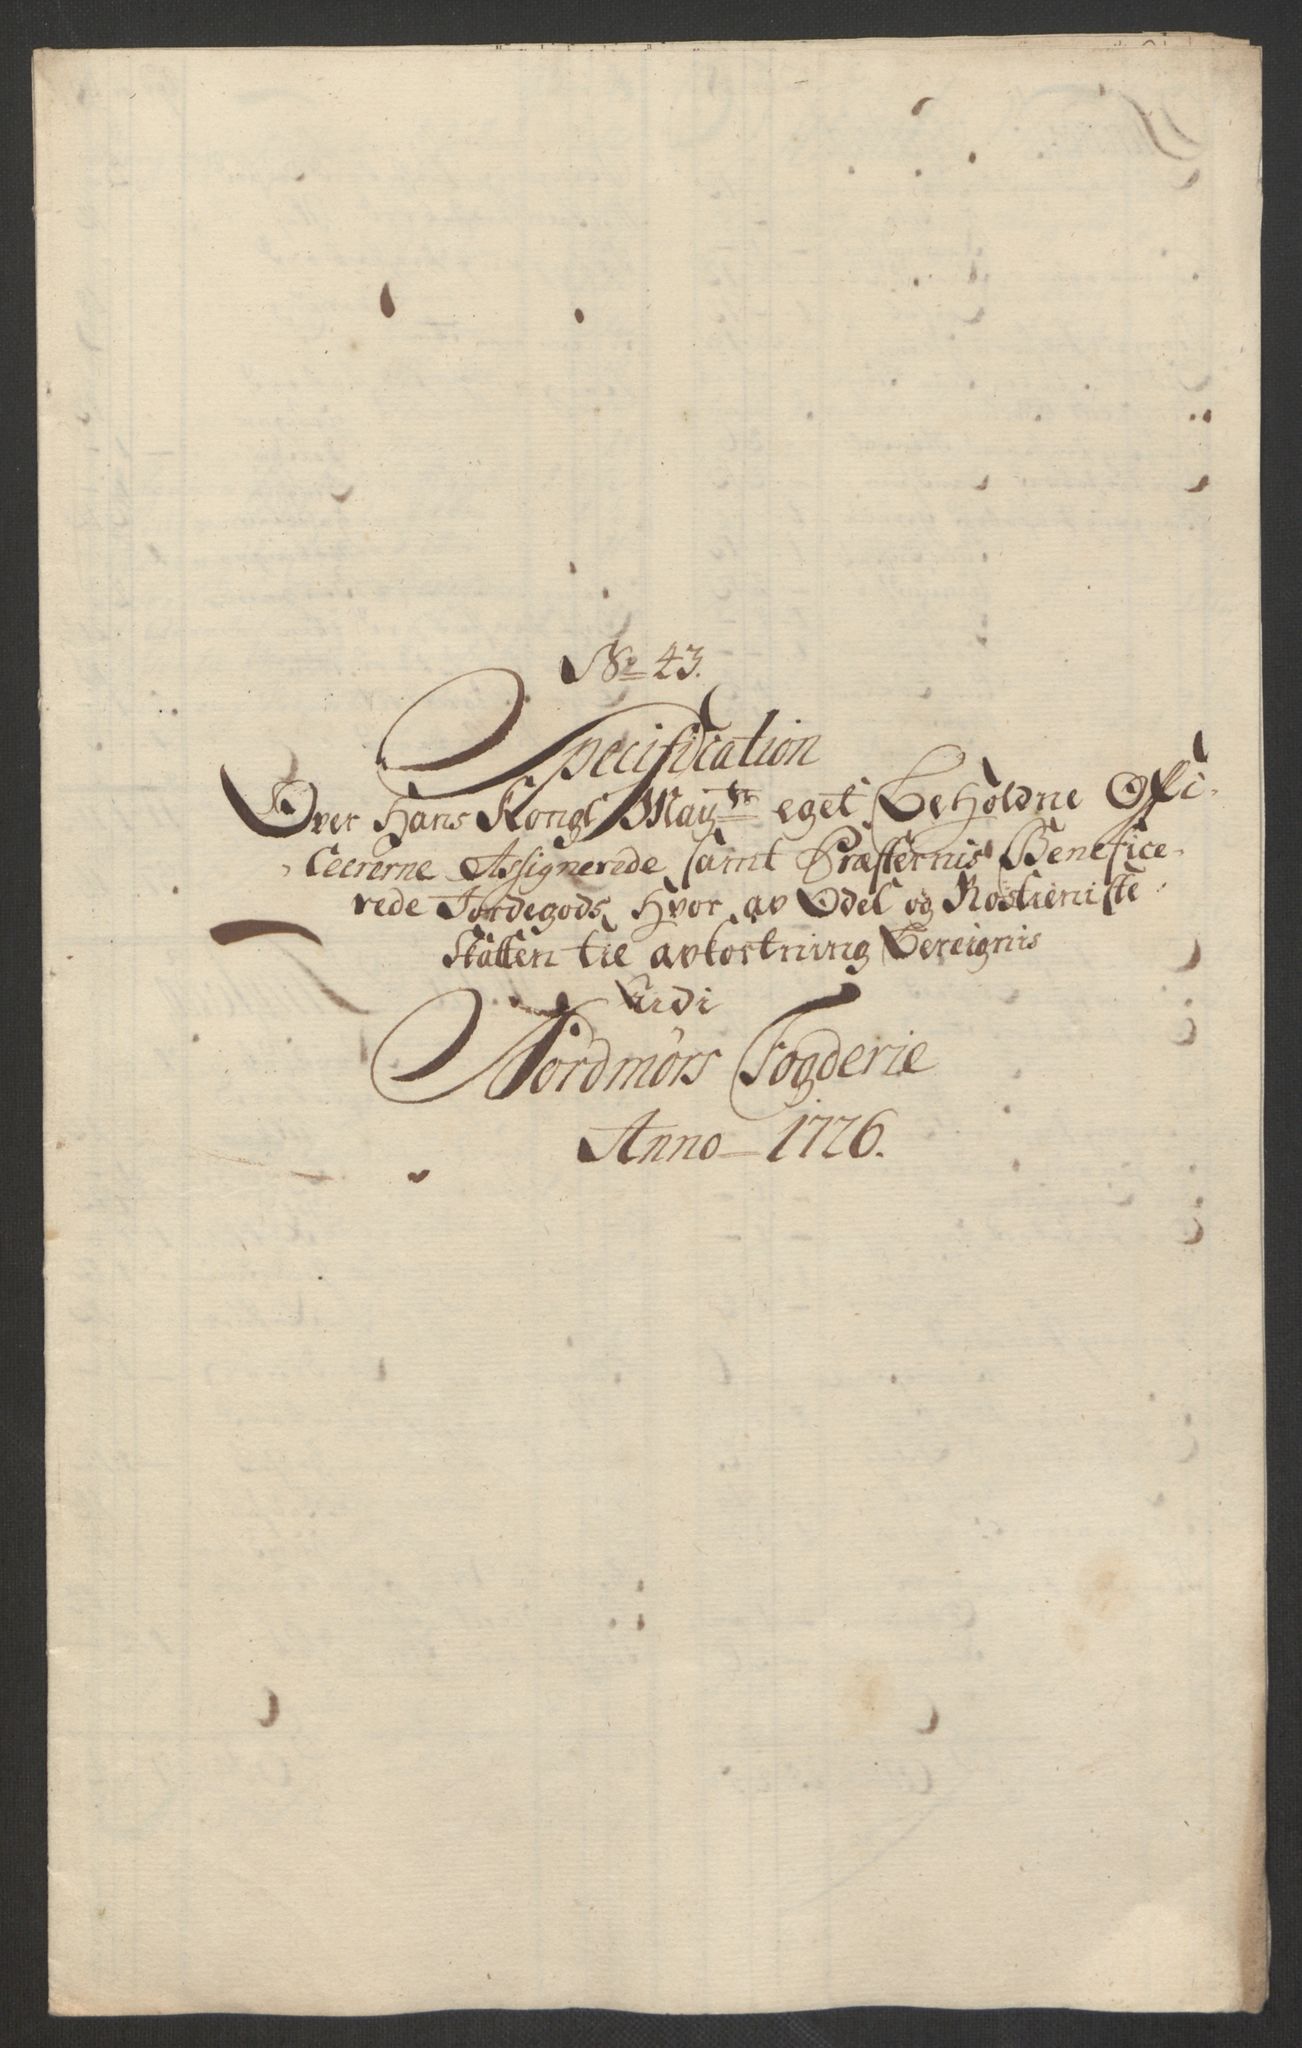 No 43.
Specification
Over Hans Kongl May.tz eget Beholdne Offi-
ceererne Assignerede samt Præsternis Benefice-
rede Jordegods, Hvor av Odel og Rostieniste
Skatten til avkortning Bereignis
Udi
Nordmørs Fogderie
Anno 1726.